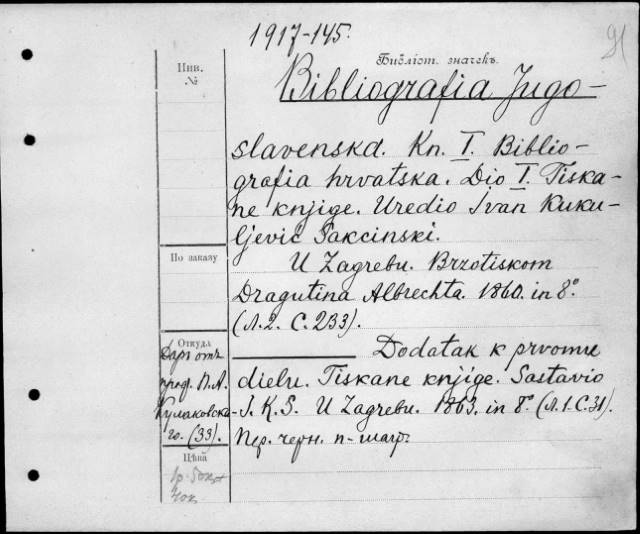 1917-145.
91
Библіот. значекъ.
Инв.
№
Bibliografia Jugo-
slavenska. Kn. I. Biblio-
grafia hrvatska. Dio I. Tiska-
ne knjige. Uredio Ivan Kuku-
ljević Sakcinski.
По заказу
U Zagrebu. Brzotiskom
Dragutina Albrechta. 1860. in 8°
(Л.2. С.233).
Откуда
Даръ отъ
проф. П.А.
Кулаковска-
го. (33).
Dodatak k prvomu
dielu. Tiskane knjige. Sastavio
I. K. S. U Zagrebu. 1863. in 8° (Л.1.С.31).
Пер. черн. п-шагр.
Цѣна
1р. 50к.